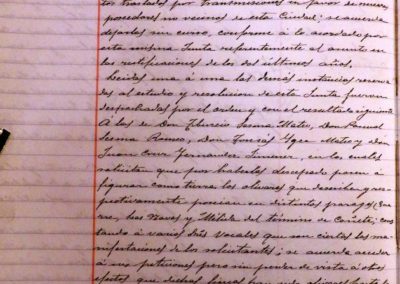 tos traslados por transmisiones en favor de nuevos
poseedores no vecinos de esta Ciudad; se acuerda
dejarlas sin curso, conforme á lo acordado por
esta misma Junta referentemente al asunto en
las rectificaciones de los dos últimos años.
Leidas una á una las demás instancias reserva
das al estudio y resolucion de esta Junta fueron
despachadas por el orden y con el resultado siguiente
Á las de Don Tiburcio Mateo, Don Manuel
Romeo, Don Tomás Mateo y don
Juan Cruz Fernandez Jimenez, en las cuales
solicitan que por haberlos descepado pasen á
figurar como tierra los olivares que describen y res
pectivamente poseian en distintos parages
las Navas y del término de Cañete; cons
tando á varios Sres Vocales que son ciertas las ma
nifestaciones de los solicitantes; se acuerda acceder
á sus peticiones pero sin perder de vista á otros
efectos que dichas fincas han sido